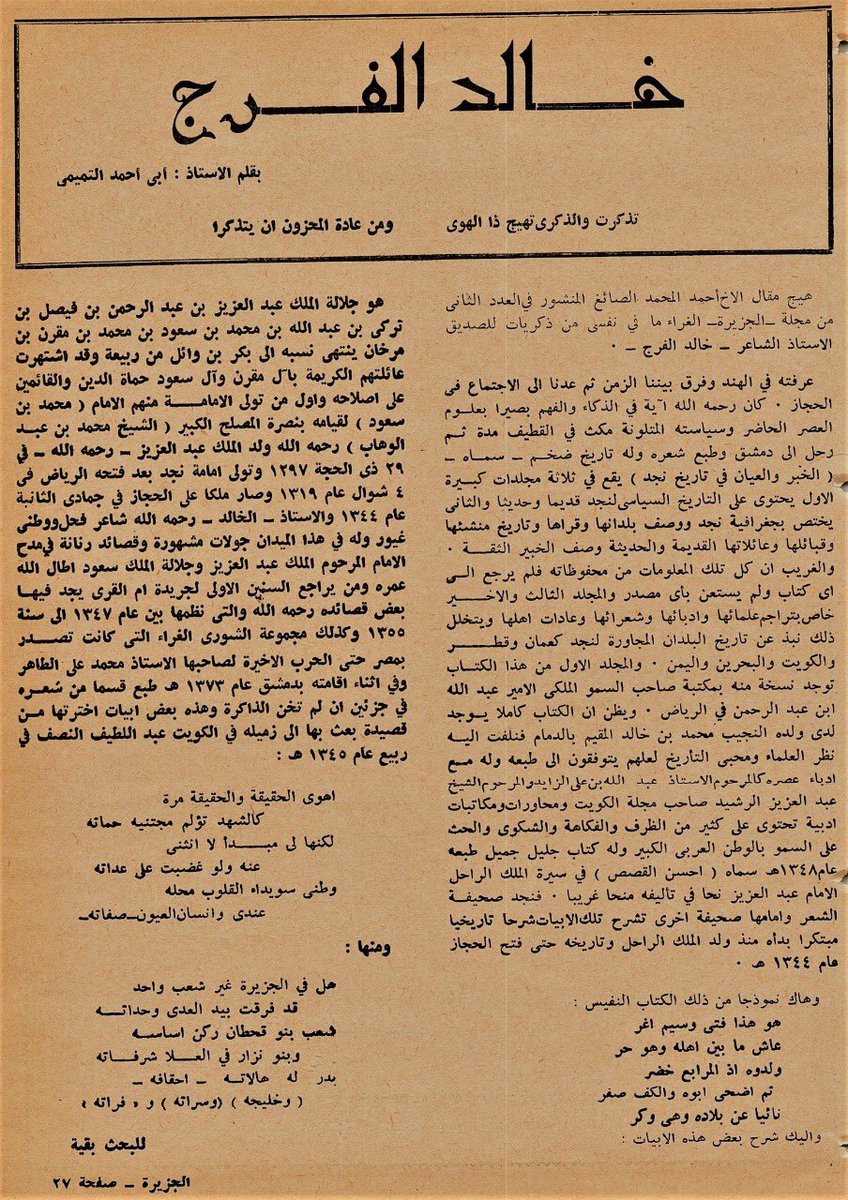 خالد الفرج
بقلم الاستاذ : أبى أحمد التميمى
تذكرت والذكرى تهيج ذا الهوى ومن عادة المحزون ان يتذكرا
هيج مقال الاخ أحمد المحمد الصائغ المنشور في العدد الثانى
من مجلة ـ الجزيرة ـ الغراء ما في نفسى من ذكريات للصديق
الاستاذ الشاعر ـ خالد الفرج ـ .
عرفته في الهند وفرق بيننا الزمن ثم عدنا الى الاجتماع فى
الحجاز . كان رحمه الله آية في الذكاء والفهم بصيرا بعلوم
العصر الحاضر وسياسته المتلونة مكث في القطيف مدة ثم
رحل الى دمشق وطبع شعره وله تاريخ ضخم ـ سماه ـ
( الخبر والعيان في تاريخ نجد ) يقع في ثلاثة مجلدات كبيرة
الاول يحتوى على التاريخ السياسى لنجد قديما وحديثا والثانى
يختص بجغرافية نجد ووصف بلدانها وقراها وتاريخ منشئها
وقبائلها وعائلاتها القديمة والحديثة وصف الخبير الثقة .
والغريب ان كل تلك المعلومات من محفوظاته فلم يرجع الى
اى كتاب ولم يستعن بأى مصدر والمجلد الثالث والاخير
خاص بتراجم علمائها وادبائها وشعرائها وعادات اهلها ويتخلل
ذلك نبذ عن تاريخ البلدان المجاورة لنجد كعمان وقطر
والكويت والبحرين واليمن . والمجلد الاول من هذا الكتاب
توجد نسخة منه بمكتبة صاحب السمو الملكى الامير عبد الله
ابن عبد الرحمن في الرياض . ويظن ان الكتاب كاملا يوجد
لدى ولده النجيب محمد بن خالد المقيم بالدمام فنلفت اليه
نظر العلماء ومحبى التأريخ لعلهم يتوفقون الى طبعه وله مع
ادباء عصره كالمرحوم الاستاذ عبد الله بن على الزايد والمرحوم الشيخ
عبد العزيز الرشيد صاحب مجلة الكويت ومحاورات ومكاتبات
ادبية تحتوى على كثير من الظرف والفكاهة والشكوى والحث
على السمو بالوطن العربى الكبير وله كتاب جليل جميل طبعه
عام ١٣٤٨هـ سماه ( احسن القصص ) في سيرة الملك الراحل
الامام عبد العزيز نحا في تاليفه منحا غريبا . فنجد صحيفة
الشعر وامامها صحيفة اخرى تشرح تلك الابيات شرحا تاريخيا
مبتكرا بدأه منذ ولد الملك الراحل وتاريخه حتى فتح الحجاز
عام ١٣٤٤ هـ .
وهاك نموذجا من ذلك الكتاب النفيس :
هو هذا فتى وسيم اغر
عاش ما بين اهله وهو حر
ولدوه اذ المرابع خضر
ثم اضحى ابوه والكف صفر
نائيا عن بلاده وهى وكر
واليك شرح بعض هذه الابيات :
هو جلالة الملك عبد العزيز بن عبد الرحمن بن فيصل بن
تركى بن عبد الله بن محمد بن سعود بن محمد بن مقرن بن
مرخان ينتهى نسبه الى بكر بن وائل من ربيعة وقد اشتهرت
عائلتهم الكريمة بآل مقرن وآل سعود حماة الدين والقائمين
على اصلاحه واول من تولى الامامة منهم الامام ( محمد بن
سعود ) لقيامه بنصرة المصلح الكبير ( الشيخ محمد بن عبد
الوهاب ) رحمه الله ولد الملك عبد العزيز ـ رحمه الله ـ في
٢٩ ذى الحجة ١٢٩٧ وتولى امامة نجد بعد فتحه الرياض فى
٤ شوال عام ١٣١٩ وصار ملكا على الحجاز في جمادى الثانية
عام ١٣٤٤ والاستاذ ـ الخالد ـ رحمه الله شاعر فحل ووطنى
غيور وله في هذا الميدان جولات مشهورة وقصائد رنانة في مدح
الامام المرحوم الملك عبد العزيز وجلالة الملك سعود اطال الله
عمره ومن يراجع السنين الاولى لجريدة ام القرى يجد فيها
بعض قصائده رحمه الله والتى نظمها بين عام ١٣٤٧ الى سنة
١٣٥٥ وكذلك مجموعة الشورى الغراء التى كانت تصدر
بمصر حتى الحرب الاخيرة لصاحبها الاستاذ محمد على الطاهر
وفي اثناء اقامته بدمشق عام ١٣٧٣ هـ طبع قسما من شعره
في جزئين ان لم تخن الذاكرة وهذه بعض ابيات اخترتها من
قصيدة بعث بها الى زميله في الكويت عبد اللطيف النصف في
ربيع عام ١٣٤٥ هـ :
اهوى الحقيقة والحقيقة مرة
كالشهد تؤلم مجتنيه حماته
لكنها لى مبدأ لا انثنى
عنه ولو غضبت على عداته
وطنى سويداء القلوب محله
عندى وانسان العيون ـ صفاته ـ
ومنها :
هل في الجزيرة غير شعب واحد
قد فرقت بيد العدى وحداته
شعب بنو قحطان ركن اساسه
وبنو نزار في العلا شرفاته
بدر له هالاته ـ احقافه ـ
( وخليجه ) ( وسراته ) و « فراته »
للبحث بقية
الجزيرة ـ صفحة ٢٧